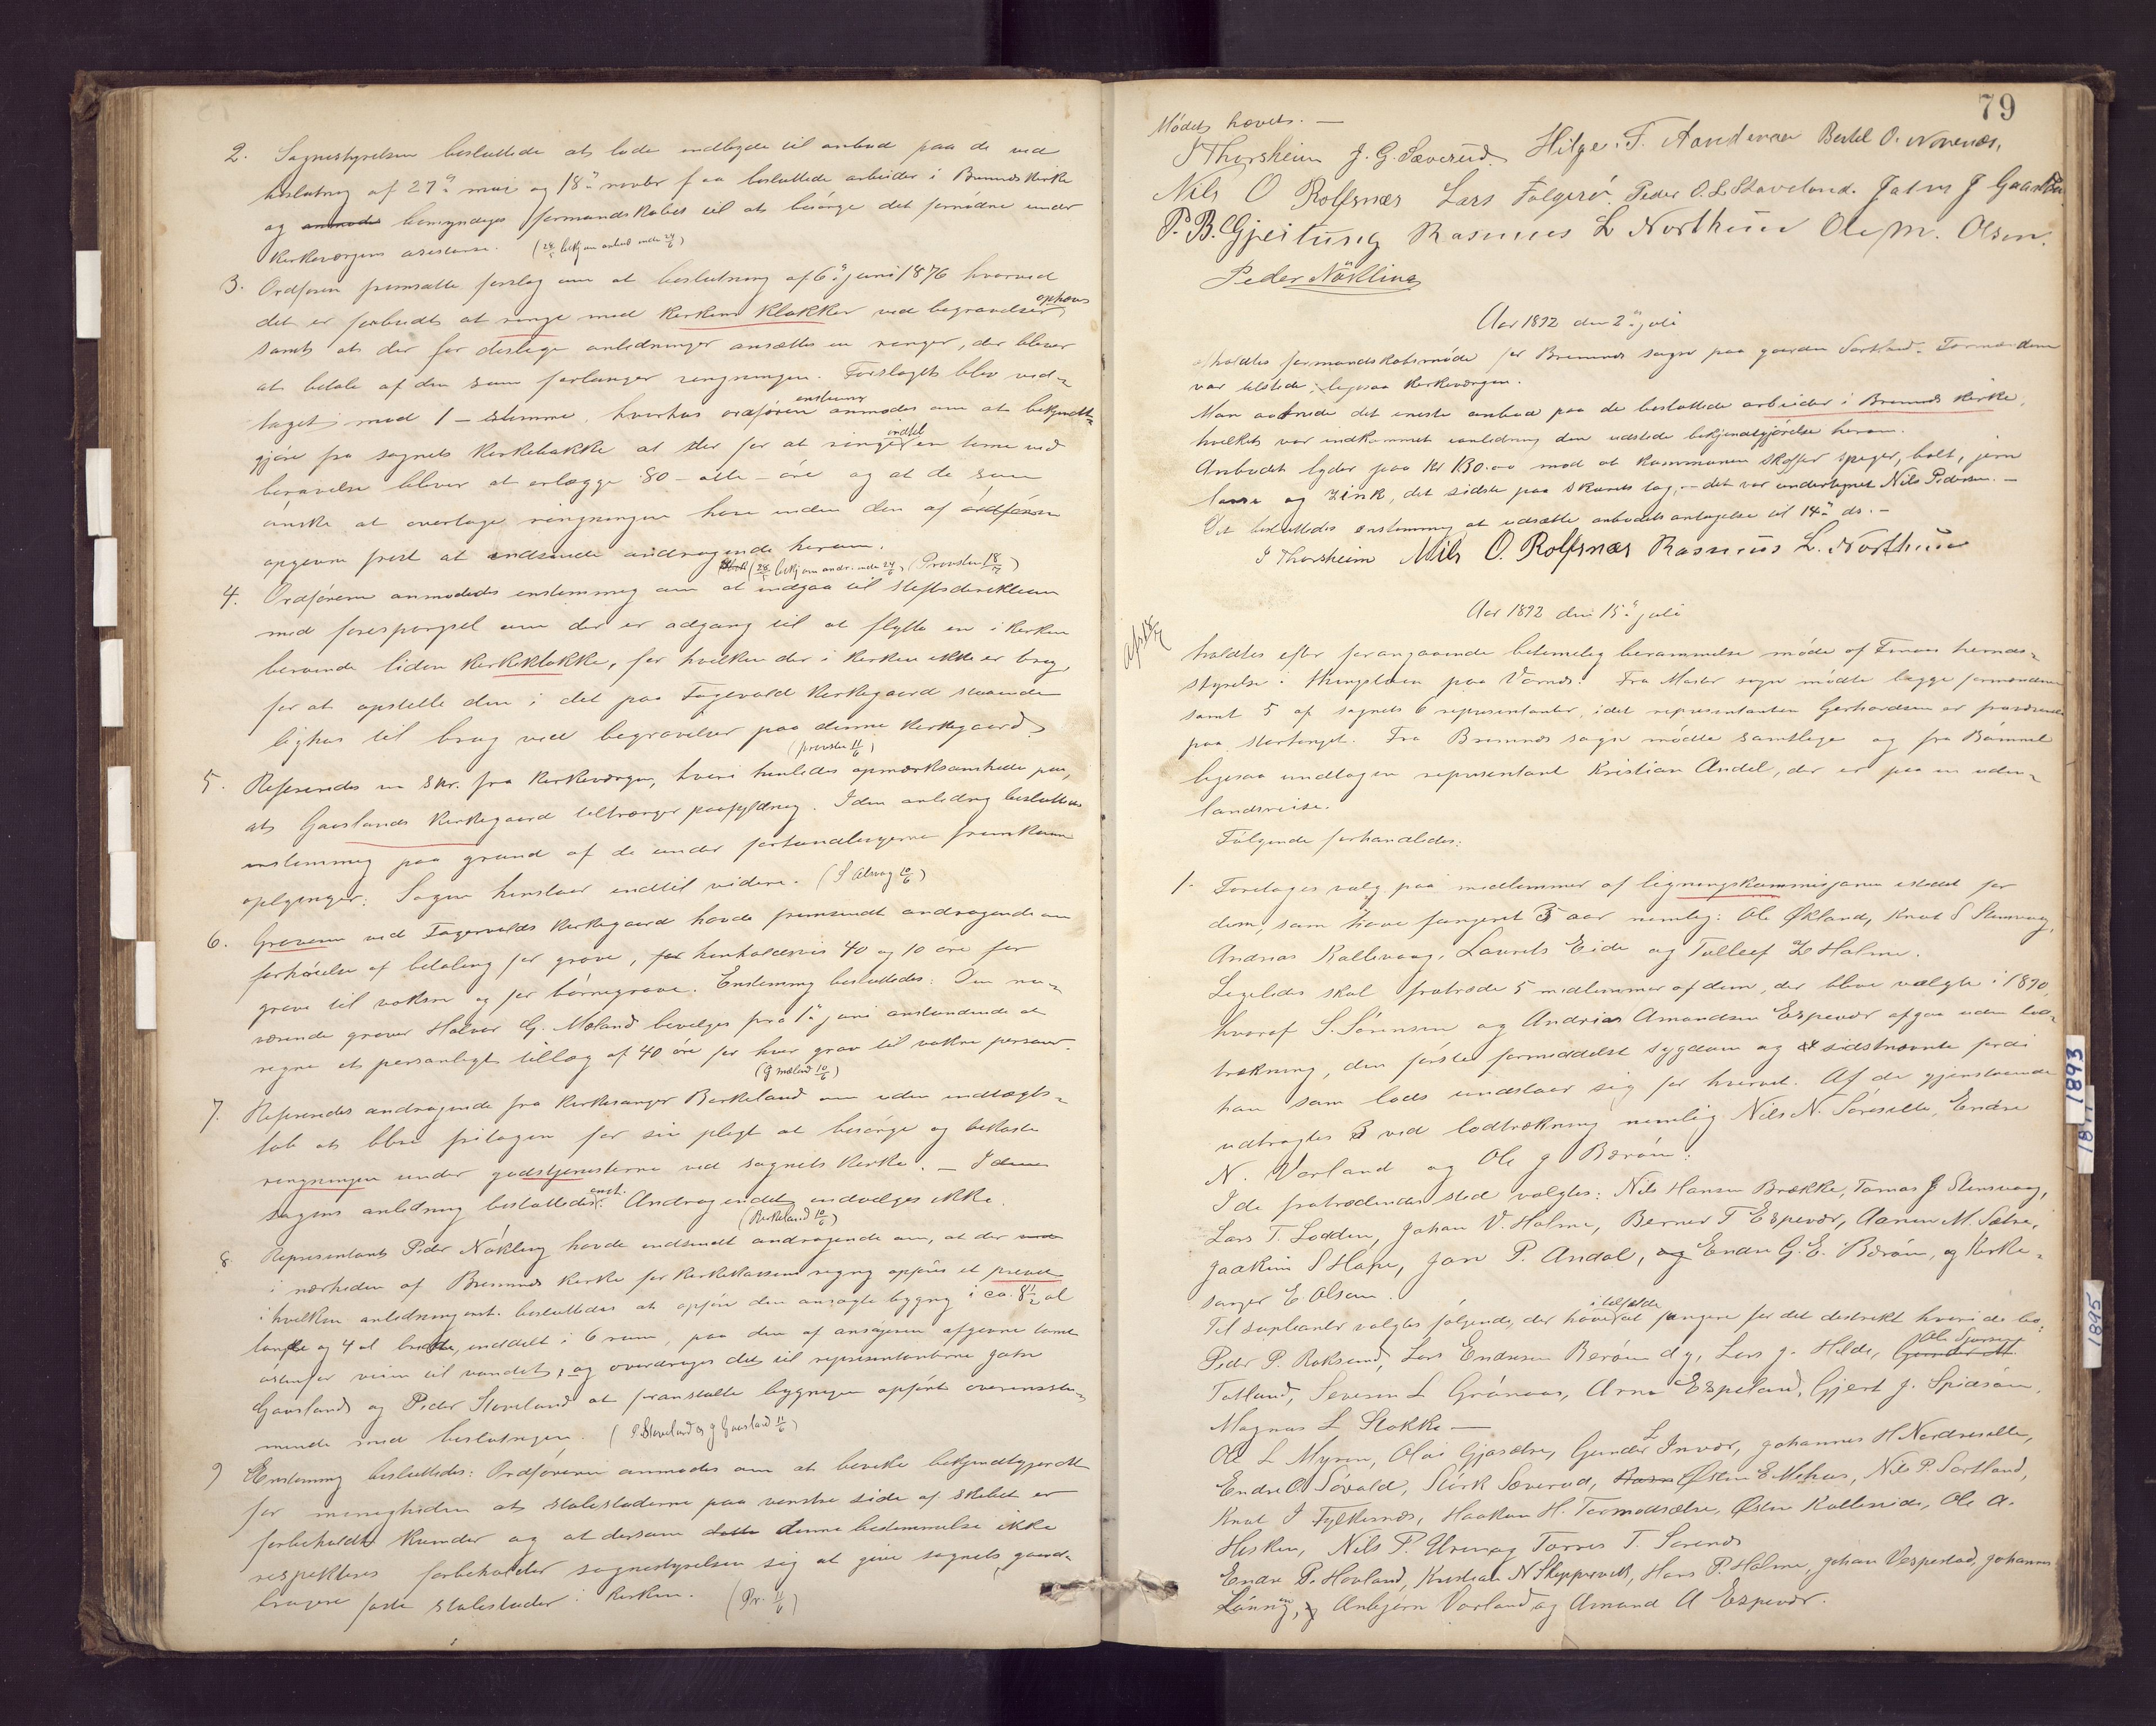 2. Sognestyrelsen besluttede at lade indbyde til anbud paa de ved
beslutning af 27de mai og 18de novbr f aa besluttede arbeider i Bremnes kirke
og anmodes bemyndiges formandskabet til at besörge det fornödne under
kirkeværgens assistanse. (28/5 bekj om anbud inden 24/6)
3. Ordfören fremsatte forslag om at beslutning af 6te juni 1876 hvorved
det er forbudt at ringe med kirkens klokker ved begravelser, ophæves
samt at der for deslige anledninger ansættes en ringer, der bliver
at betale af den som forlanger ringningen. Forslaget blev ved-
taget mod 1 – stemme, hvorhos ordföreren enstemmig anmodes om at bekjendt-
gjöre fra sognets kirkebakke at der for at ringe indtil en time ved
beravelse bliver at erlægge 80 – otte – öre og at de som
önske at overtage ringningen have inden den af ordföreren
opgivne frist at indsende andragende herom.
(28/5 bekj om andr. inden 24/6) (Provsten 18/7)
4. Ordföreren anmodedes enstemmig om at indgaa til stiftsdirektionen
med forespörgsel om der er adgang til at flytte en i kirken
beroende liden kirkeklokke, for hvilken der i kirken ikke er brug,
for at opstille den i det paa Fagervold kirkegaard staaende
lighus til brug ved begravelser paa denne kirkegaard.
(provsten 11/6)
5. Refereredes en skr. fra kirkeværgen, hvori henledes opmærksomheden paa,
at Gaaslands kirkegaard tiltrænger paafyldning. I den anledning besluttedes
enstemmig paa grund af de under forhandlingerne fremkomne
oplysninger: Sagen henstaar indtil videre. (S Alsvag 10/6)
6. Graveren ved Fagervolds kirkegaard havde fremsendt andragende om
forhöielse af betaling for grave, for henholdsvis 40 og 10 öre for
grave til voksne og for börnegrave. Enstemmig besluttedes: Den nu-
værende graver Halvor G. Mæland bevilges fra 1ste juni anstundende at
regne et personligt tillæg af 40 öre for hver grav til voksne personer.
(G mæland 10/6)
7. Refereredes andragende fra kirkesanger Birkeland om uden indtægts-
tab at blive fritagen for sin pligt at besörge og bekoste
ringningen under gudstjenesterne ved sognets kirke. – I denne
sagens anledning besluttedes enst.: Andragendet indvilges ikke.
(Birkeland 10/6)
8 Representant Peder Nökling havde indsendt andragende om, at der
i nærheden af Bremnes kirke for kirkekassens regning opföres et privet
i hvilken anledning enst. besluttedes at opföre den ansögte bygning i ca. 8 1/2 al
længde og 4 al bredde, inddelt i 6 rum, paa den af ansögeren afgivne tomt
östenfor veien til vandet, og overdroges det til representanterne Jatru
Gaasland og Peder Staveland at foranstalte bygningen opfört overensstem-
mende med beslutningen. (P Staveland og J Gaasland 11/6)
9 Enstemmig besluttedes: Ordföreren anmodes om at bevirke bekjendtgjordt
for menigheden at stolestaderne paa venstre side af skibet er
forbeholdt kvinder og at dersom dette denne bestemmelse ikke
respekteres forbeholder sognestyrelsen sig at give sognets gaard-
brugere faste stolestader i kirken. (Pr. 11/6)
79
Mödet hævet. –
S Thorsheim J. G. Sæverud. Hilge. F. Bertel O. Novenæs,
Nils O Rolfsnæs Lars Folgerö. Peder O. S. Staveland. Jatru J Gaasland
P. B. Gjeitung Rasmus L Northun Ole M. Olsen.
Peder Nökling
Aar 1892 den 2den juli
holdtes formandskabsmöde for Bremnes sogn paa gaarden Sortland. Formændene
var tilstede, ligesaa kirkeværgen.
Man aabnede det eneste anbud paa de besluttede arbeider i Bremnes kirke,
hvilket var indkommet i anledning den udstedte bekjendtgjörelse herom.
Anbudet lyder paa kr 130.00 mod at kommunen skaffer spiger, bolt, jern
og zink, det sidste paa skurets tag, – det var undertegnet Nils Pedersen. –
Det besluttedes enstemmig at udsætte anbudets antagelse til 14de ds. –
S Thorsheim Nils O. Rolfsnæs Rasmus L. Northun
Aar 1892 den 15de juli
holdtes efter forangaaende betimelig berammelse möde af Finaas herreds-
styrelse i thingstuen paa Vornes. Fra Moster sogn mödte begge formændene
samt 5 af sognets 6 representanter, idet representanten Gerhardsen er fraværende
paa stortinget. Fra Bremnes sogn mödte samtlige og fra Bömmel
ligesaa undtagen representant Kristian Andal, der er paa en uden-
landsreise.
Fölgende forhandledes:
1. Foretages valg paa medlemmer af ligningskommisjonen istedet for
dem, som have fungeret 3 aar nemlig: Ole Økland, Knut S Stensvaag,
Andreas Kallevaag, Laurits Eide og Tolleif L Holme.
Ligeledes skal fratræde 5 medlemmer af dem, der blev valgte i 1890,
hvoraf S. Sörensen og Andreas Amandsen Espevær afgaa uden lod-
trækning, den förste formedelst sygdom og sidstnævnte fordi
han som lods undslaar sig for hvervet. Af de gjenstaaende
udtrogtes 3 ved lodtrækning nemlig Nils N. Söresætte, Endre
N. Vorland og Ole J Beröen.
I de fratrædendes sted valgtes: Nils Hansen Brække, Tomas J Stensvaag,
Lars T. Lodden, Johan V. Holme, Berner T Espevær, Aanen M. Sætre,
Joakim S Hope, Jan P. Andal, og Endre G. E. Beröen, og kirke-
sanger E. Olsen.
Til supleanter valgtes fölgende, der have i tilfælde at fungere for det distrikt hvori de bo:
Peder P. Roksund, Lars Endresen Beröen d.y., Lars J. Helde, Gunder M.
Totland, Severin L Grönaas, Arne Espeland, Gjert J. Spidsöen,
Magnus L Stokke –
Ole L Myren, Olai Gjosætre, Gunder L Invær, Johannes H Nordresætte,
Endre O Sövold, Störk Sæverud, Östen E Mehus, Nils P. Sortland,
Knut J Fylkesnæs, Haakon H. Tormodsæter, Östen Kallevaag, Ole A.
Hisken, Nils P. Urang Torres T. Sorenæs
Endre P. Hovland, Kristian N Skeppevik, Hans P. Holme, Johan Vespestad, Johannes
Lönning, og Anbjörn Vorland og Amand A Espevær.
1893
1895